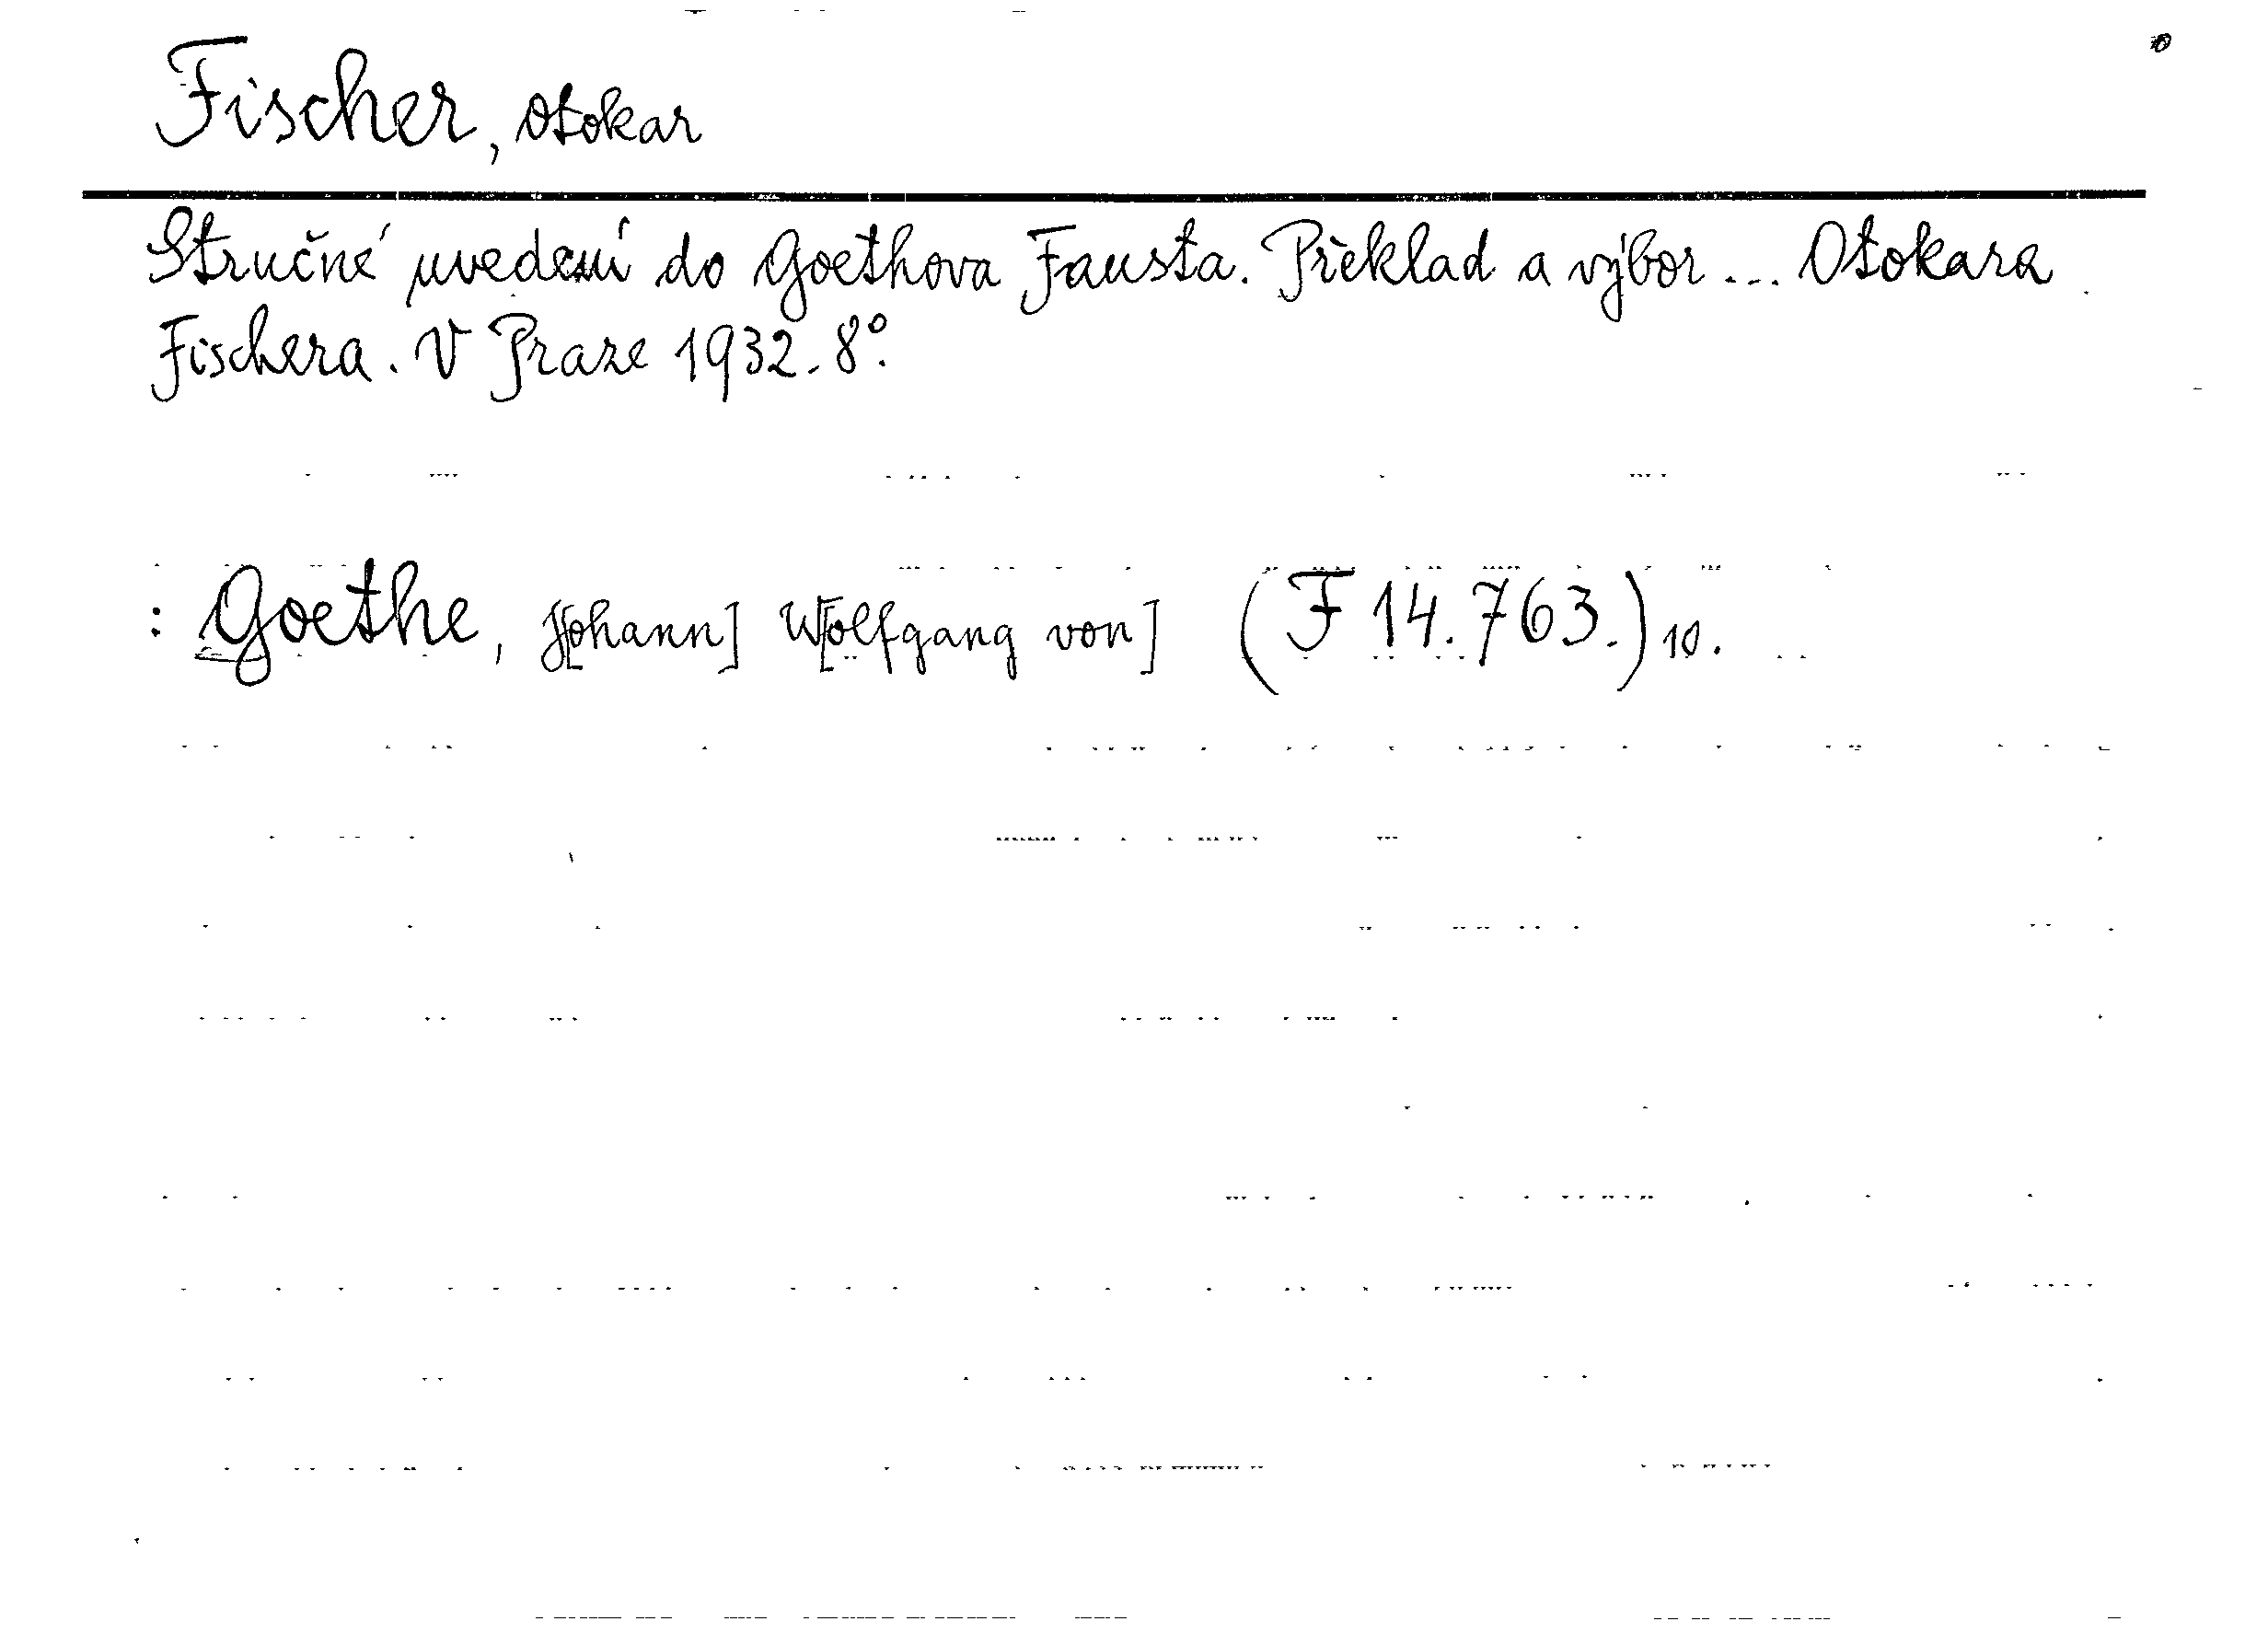 Fischer, Otokar
Stručné uvedení do Goethova Fausta. Překlad a výbor ... Otokara
Fischera. V Praze 1932. 8°.
: Goethe, J[ohann] W[olfgang von] (F 14.763.) 10.